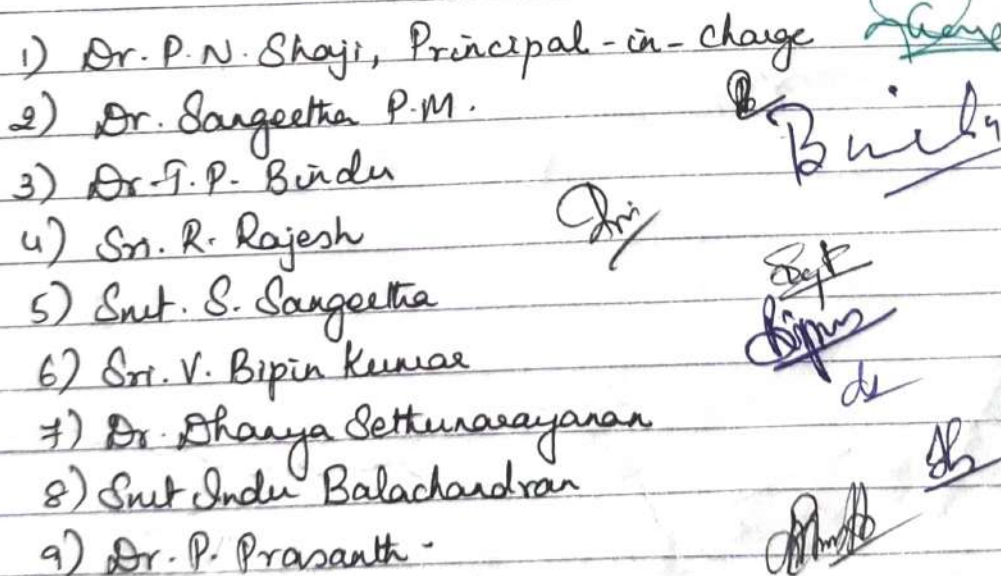 1) Dr. P. N. Shaji, Principal-in-charge
2) Dr. Sangeetha P.M.
3) Dr. T. P. Bindu
4) Sri. R. Rajesh
5) Smt. S. Sangeetha
6) Sri. V. Bipin Kumar
7) Dr. Dhanya Sethunarayanan
8) Smt Indu Balachandran
9) Dr. P. Prasanth.